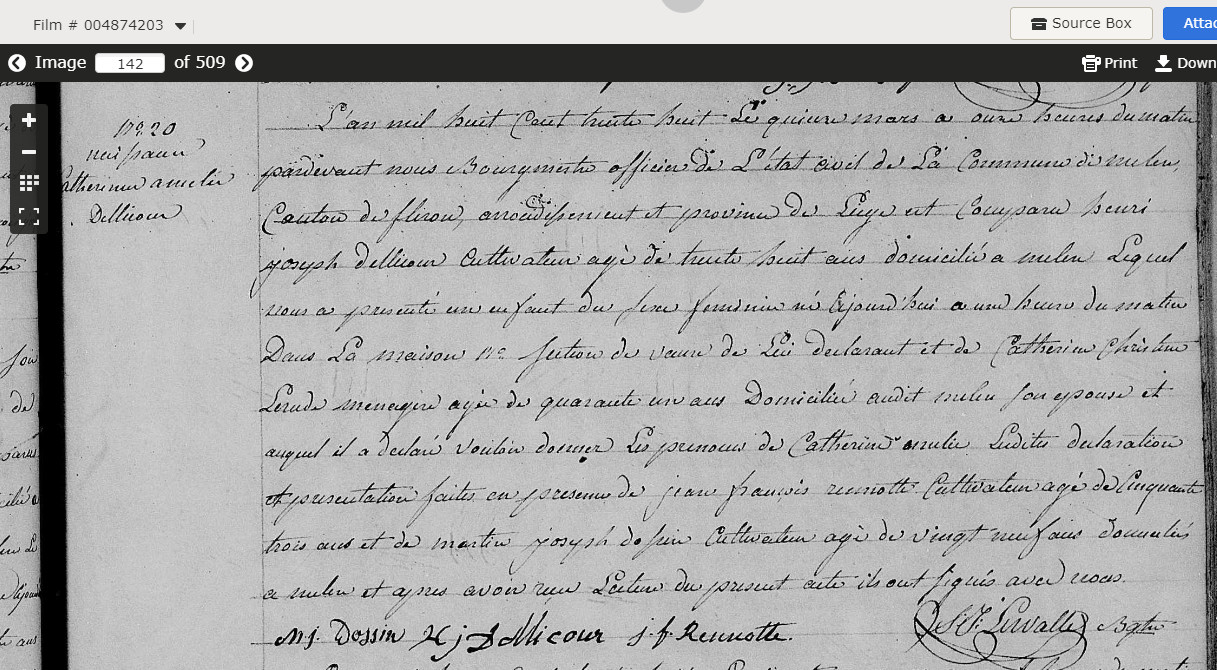 Film # 004874203
Source Box
Attac
Image 142 of 509
Print
Down
L'an mil huit Cent trente huit Le quinze mars a onze heures du matin
N° 20
naissance
pardevant nous Bourgmestre officier de L'état civil de La Commune de melen,
Catherinne amelie
Dellicour
Canton de fléron, arrondissement et province de Liège est Comparu henri
joseph dellicour Cultivateur agé de trente huit ans domicilié a melen Lequel
nous a presenté un enfant du sexe feminin né aujourd'hui a une heure du matin
Dans La maison n° section de vaux de Lui declarant et de Catherine Christine
Lerude menagere agée de quarante un ans Domiciliée audit melen son epouse et
auquel il a declaré vouloir donner Les prenoms de Catherine amelie Lesdites declaration
et presentation faites en presence de jean françois rennotte Cultivateur agé de Cinquante
trois ans et de martin joseph dossin Cultivateur agé de vingt neuf ans domiciliés
a melen et apres avoir reçu Lecture du present acte ils ont signés avec nous.
M j. Dossin H j Dellicour j. f. Rennotte. Levalle Bgtre